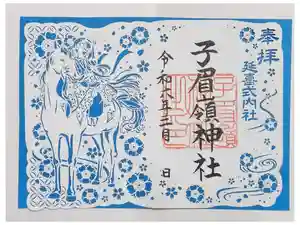 奉拝
延喜式内社
子眉嶺神社
令和六年二月 日